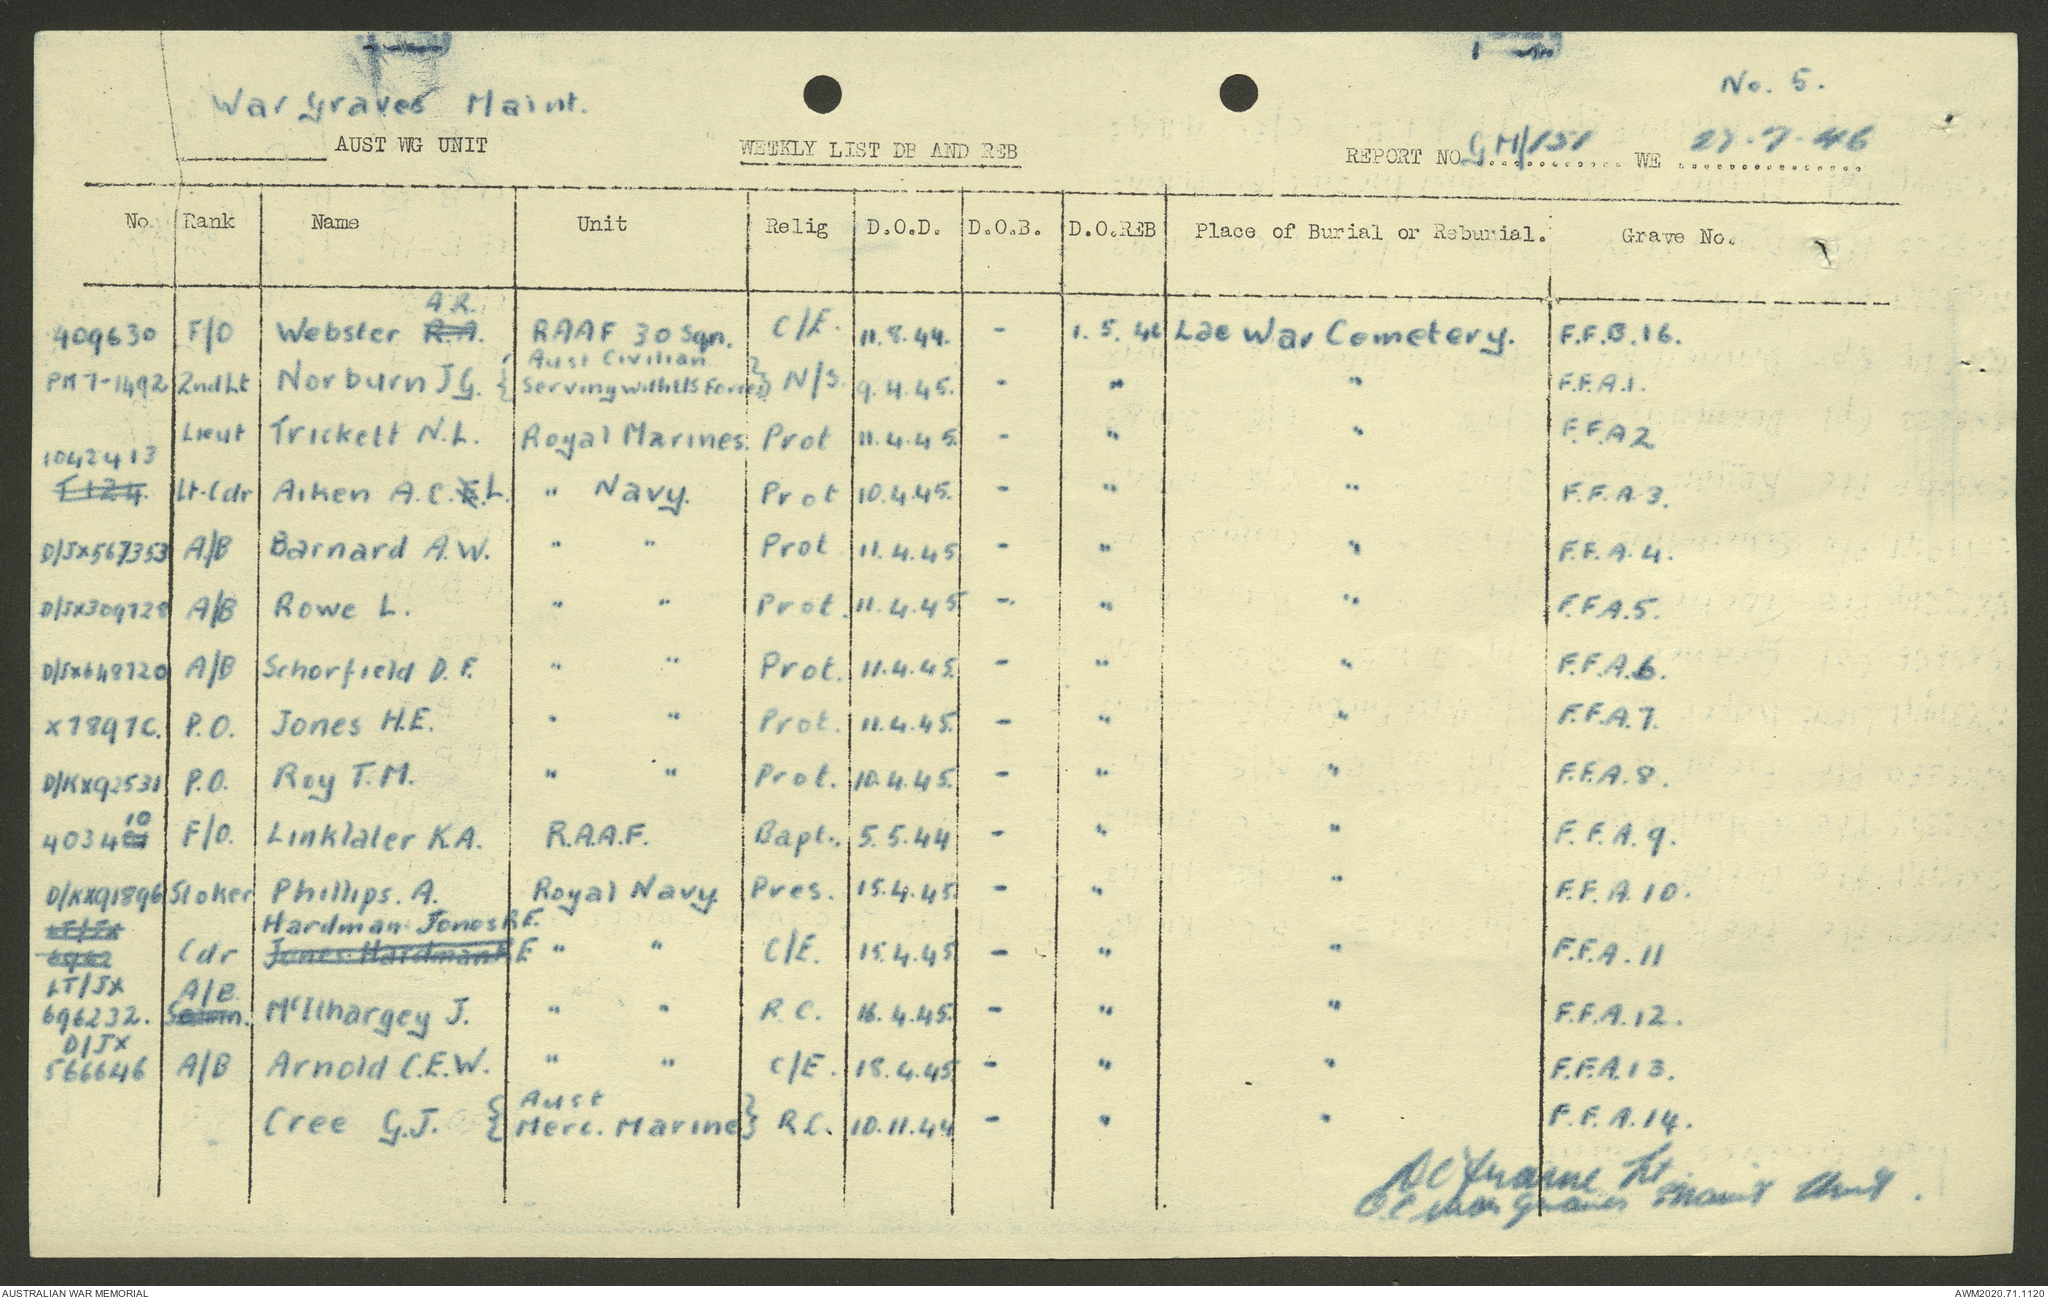 No. 5.
War Graves Maint.
AUST WG UNIT WEEKLY LIST DB AND REB REPORT NO GM/151 WE 27.7.46
No. Rank Name Unit Relig D.O.D. D.O.B. D.O.REB Place of Burial or Reburial. Grave No.
A.R.
409630 F/O Webster R.A. RAAF 30 Sqn. C/E. 11.8.44. - 1.5.46 Lae War Cemetery. F.F.B.16.
Aust Civilian
PM7-1492 2nd Lt Norburn J.G. { Serving with US Forces } N/S. 9.4.45. - " " F.F.A.1.
Lieut Trickett N.L. Royal Marines. Prot 11.4.45. - " " F.F.A.2
1042413
T124. Lt-Cdr Aiken A.C.E.L. " Navy. Prot 10.4.45. - " " F.F.A.3.
D/JX567353 A/B Barnard A.W. " " Prot 11.4.45 - " " F.F.A.4.
D/JX309728 A/B Rowe L. " " Prot. 11.4.45 - " " F.F.A.5.
D/JX648720 A/B Schorfield D.F. " " Prot. 11.4.45. - " " F.F.A.6.
X7897C. P.O. Jones H.E. " " Prot. 11.4.45. - " " F.F.A.7.
D/KX92531 P.O. Roy T.M. " " Prot. 10.4.45. - " " F.F.A.8.
10
4034 F/O. Linklater K.A. R.A.A.F. Bapt. 5.5.44 - " " F.F.A.9.
D/KX91896 Stoker Phillips. A. Royal Navy Pres. 15.4.45. - " " F.F.A.10.
LT/JX Hardman-Jones R.E.
6962 Cdr Jones-Hardman R.E " " C/E. 15.4.45 - " " F.F.A.11
LT/JX A/B
696232. Seamn. McIlhargey J. " " R.C. 16.4.45. - " " F.F.A.12.
D/JX
566646 A/B Arnold C.E.W. " " C/E. 18.4.45 - " " F.F.A.13.
Aust
Cree G.J. { Merc. Marine } R.C. 10.11.44 - " " F.F.A.14.
Lt
O.C War Graves Maint Unit.
AUSTRALIAN WAR MEMORIAL AWM2020.71.1120